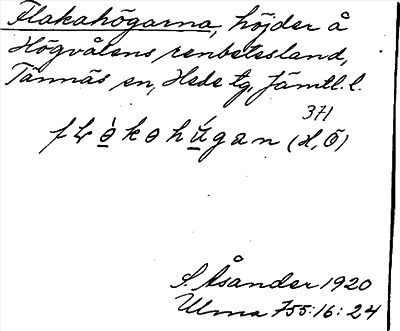 Flakahögarna, höjder å
Högvålens renbetesland,
Tännäs sn, Hede tg, Jämtl. l.
371
(H, Ö)
S. Åsander 1920
Ulma 755:16:24